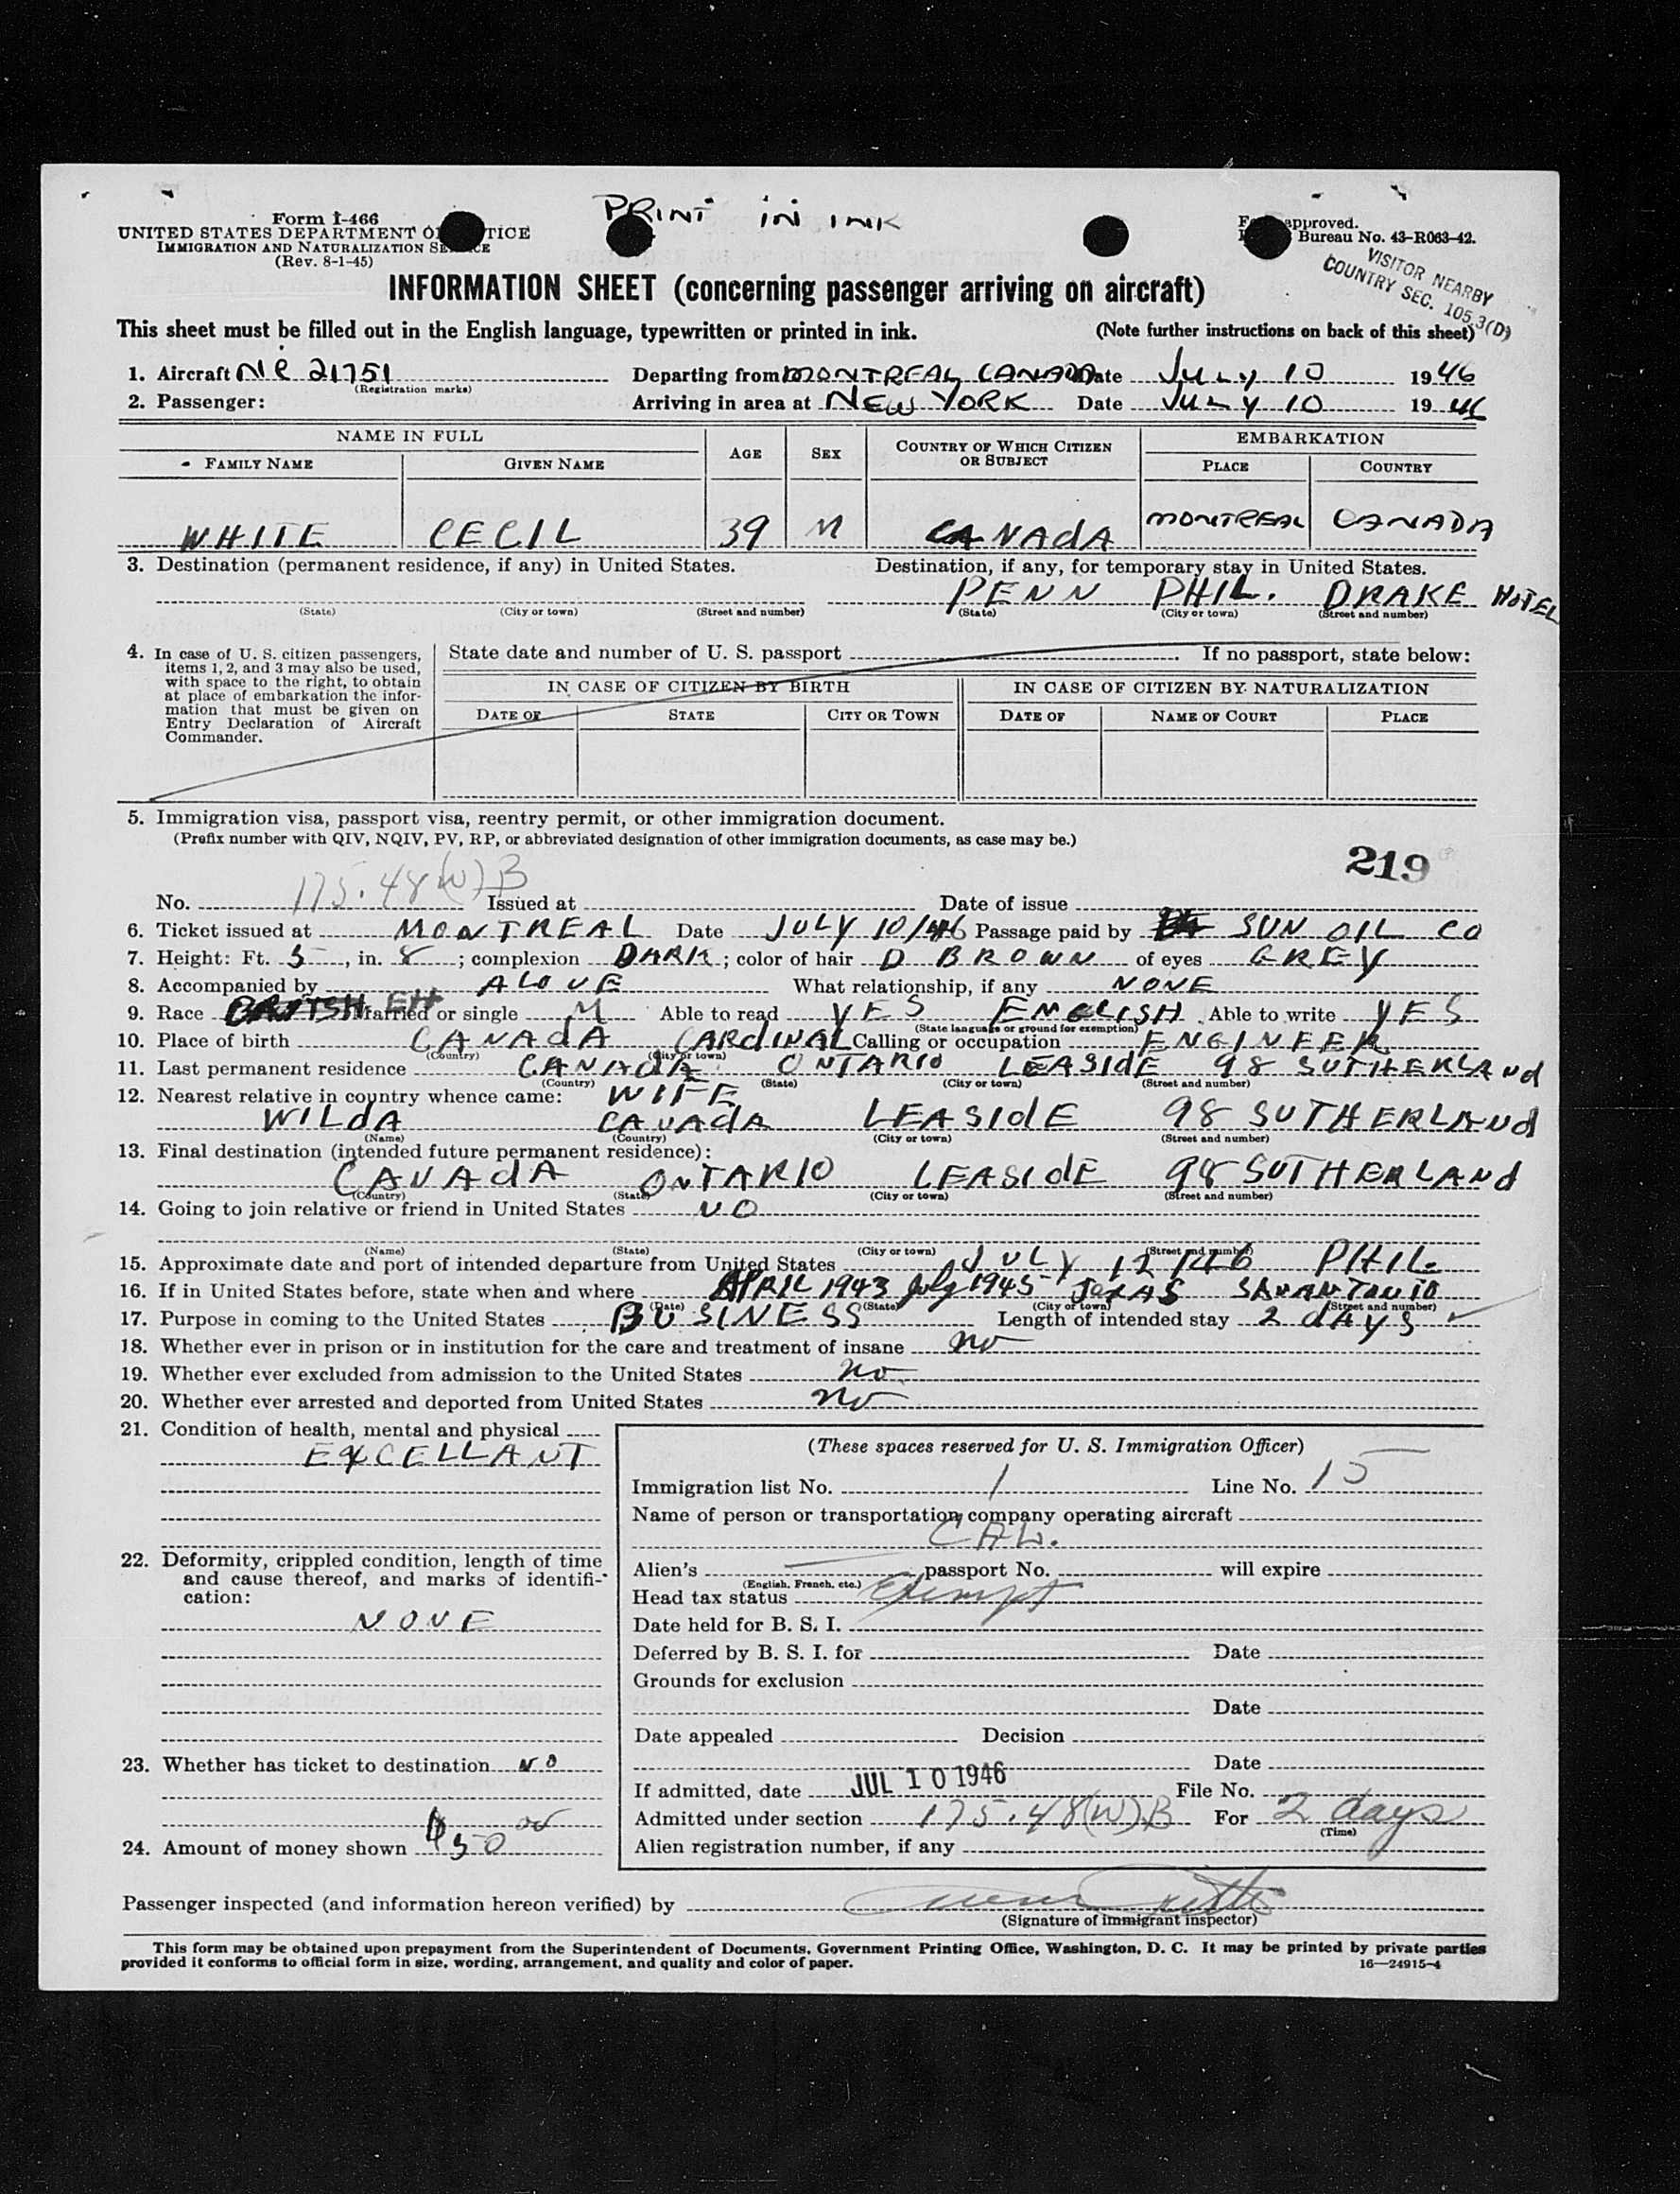 PRINT IN INK
Form I-466
UNITED STATES DEPARTMENT OF JUSTICE
IMMIGRATION AND NATURALIZATION SERVICE
(Rev. 8-1-45)
approved.
Bureau No. 43-R063-42.
VISITOR NEARBY
COUNTRY SEC. 105.3(D)
INFORMATION SHEET (concerning passenger arriving on aircraft)
This sheet must be filled out in the English language, typewritten or printed in ink. (Note further instructions on back of this sheet)
1. Aircraft NC 21751 Departing from MONTREAL CANADA Date JULY 10 1946
(Registration marks)
2. Passenger: Arriving in area at NEW YORK Date JULY 10 1946
NAME IN FULL AGE SEX COUNTRY OF WHICH CITIZEN OR SUBJECT EMBARKATION
FAMILY NAME GIVEN NAME PLACE COUNTRY
WHITE CECIL 39 M CANAdA MONTREAL CANADA
3. Destination (permanent residence, if any) in United States. Destination, if any, for temporary stay in United States.
PENN PHIL. DRAKE HOTEL
(State) (City or town) (Street and number) (State) (City or town) (Street and number)
4. In case of U. S. citizen passengers, items 1, 2, and 3 may also be used, with space to the right, to obtain at place of embarkation the information that must be given on Entry Declaration of Aircraft Commander.
State date and number of U. S. passport If no passport, state below:
IN CASE OF CITIZEN BY BIRTH IN CASE OF CITIZEN BY NATURALIZATION
DATE OF STATE CITY OR TOWN DATE OF NAME OF COURT PLACE
5. Immigration visa, passport visa, reentry permit, or other immigration document.
(Prefix number with QIV, NQIV, PV, RP, or abbreviated designation of other immigration documents, as case may be.)
219
No. 175.48(W)B Issued at Date of issue
6. Ticket issued at MONTREAL Date JULY 10/46 Passage paid by SUN OIL CO
7. Height: Ft. 5, in. 8; complexion DARK; color of hair D BROWN of eyes GREY
8. Accompanied by ALONE What relationship, if any NONE
9. Race Married or single M Able to read YES ENGLISH Able to write YES
(State language or ground for exemption)
10. Place of birth CANAdA CARdINAL Calling or occupation ENGINEER
(Country) (City or town)
11. Last permanent residence CANAdA ONTARIO LEASIdE 98 SUTHERLANd
(Country) (State) (City or town) (Street and number)
12. Nearest relative in country whence came: WIFE
WILdA CANAdA LEASIdE 98 SUTHERLANd
(Name) (Country) (City or town) (Street and number)
13. Final destination (intended future permanent residence):
CANAdA ONTARIO LEASIdE 98 SUTHERLANd
(Country) (State) (City or town) (Street and number)
14. Going to join relative or friend in United States NO
(Name) (State) (City or town) (Street and number)
15. Approximate date and port of intended departure from United States JULY 12/46 PHIL.
16. If in United States before, state when and where APRIL 1943 July 1945 TEXAS SANANTONIO
(Date) (State) (City or town) (Street and number)
17. Purpose in coming to the United States BUSINESS Length of intended stay 2 dAyS
18. Whether ever in prison or in institution for the care and treatment of insane no
19. Whether ever excluded from admission to the United States no
20. Whether ever arrested and deported from United States no
21. Condition of health, mental and physical
EXCELLANT
22. Deformity, crippled condition, length of time and cause thereof, and marks of identification:
NONE
23. Whether has ticket to destination NO
24. Amount of money shown $50 00
(These spaces reserved for U. S. Immigration Officer)
Immigration list No. 1 Line No. 15
Name of person or transportation company operating aircraft
Alien's passport No. will expire
(English, French, etc.)
Head tax status Exempt
Date held for B. S. I.
Deferred by B. S. I. for Date
Grounds for exclusion
Date
Date appealed Decision
Date
If admitted, date JUL 10 1946 File No.
Admitted under section 175.48(W)B For 2 days
(Time)
Alien registration number, if any
Passenger inspected (and information hereon verified) by
(Signature of immigrant inspector)
This form may be obtained upon prepayment from the Superintendent of Documents, Government Printing Office, Washington, D. C. It may be printed by private parties
provided it conforms to official form in size, wording, arrangement, and quality and color of paper. 16—24915-4